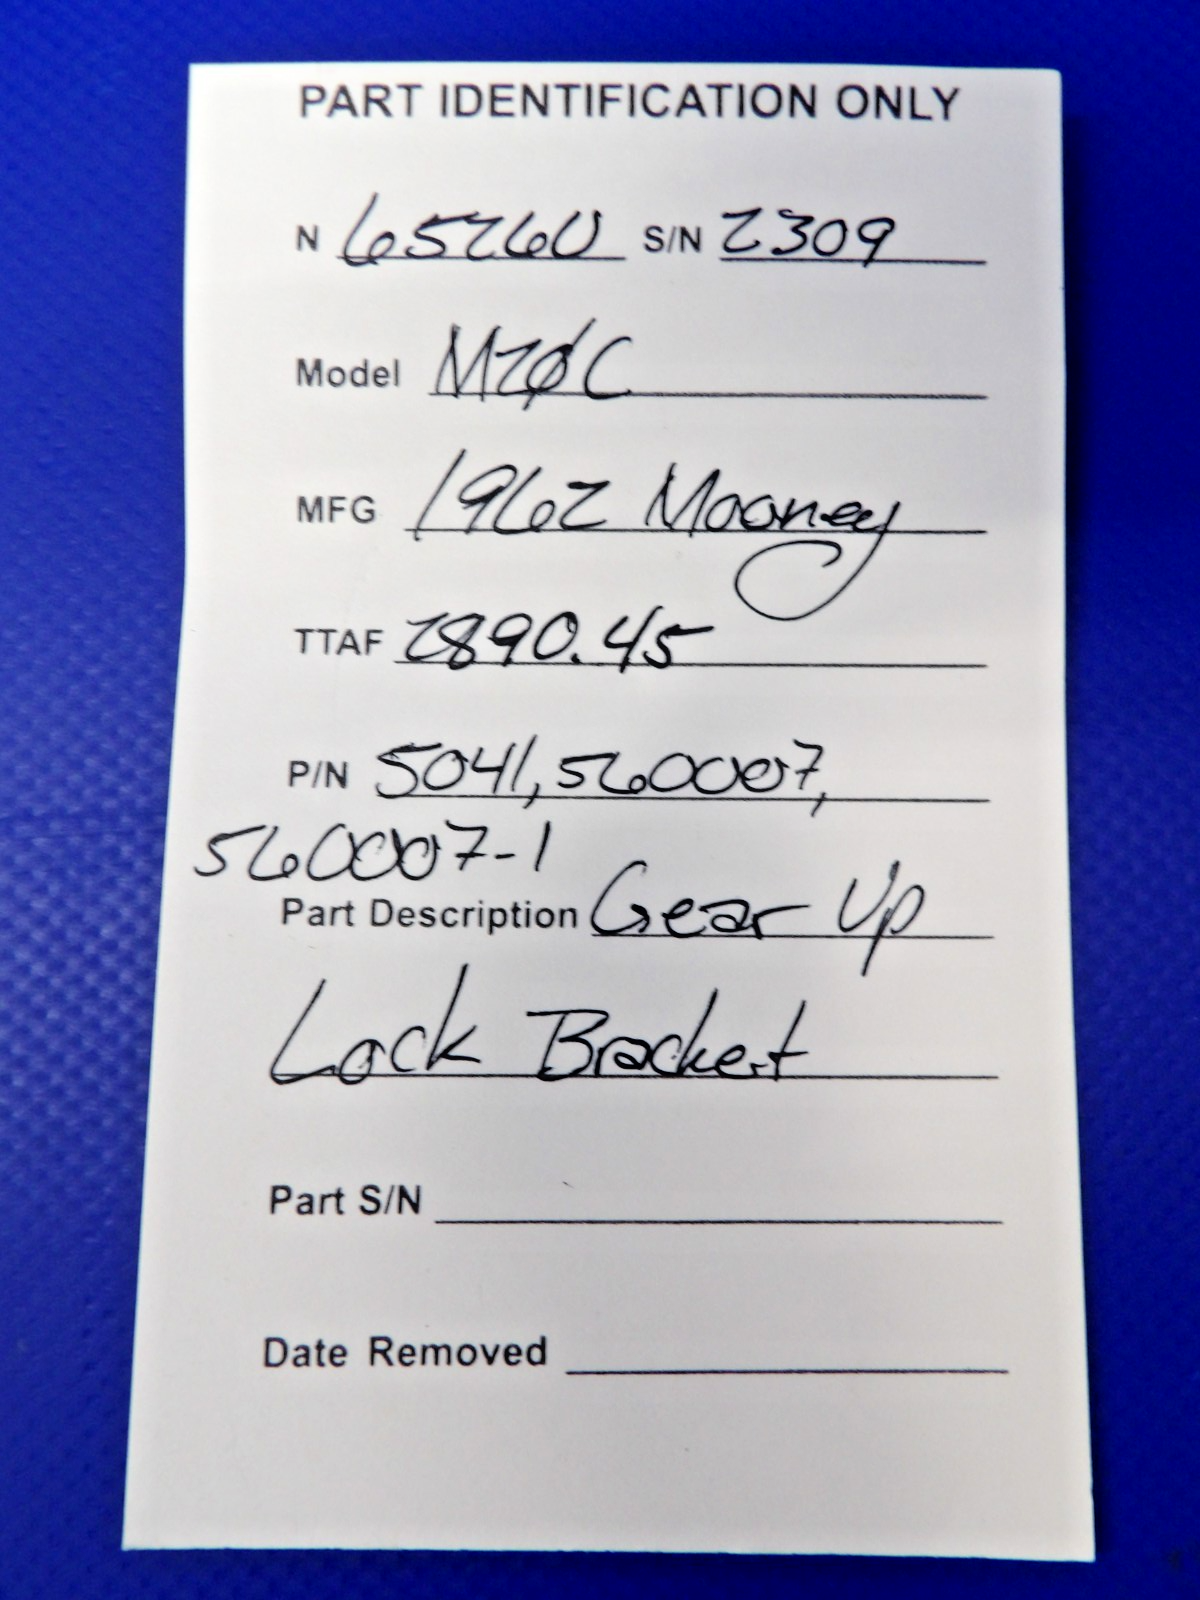 PART IDENTIFICATION ONLY
N 6526U S/N 2309
Model M20C
MFG 1962 Mooney
TTAF 2890.45
P/N 5041, 560007,
560007-1
Part Description Gear Up
Lock Bracket
Part S/N
Date Removed